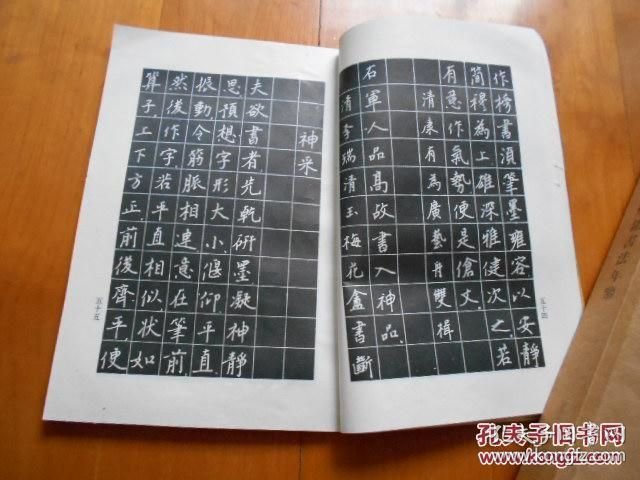 作榜書須筆墨雍容以安靜
簡穆為上雄深雅健次之若
有意作氣勢便是傖父
清康有為廣藝舟雙楫
右軍人品高故書入神品
清李瑞清玉梅花盦書斷
五十四
神采
夫欲書者先乾研墨凝神靜
思預想字形大小偃仰平直
振動令筋脈相連意在筆前
然後作字若平直相似狀如
算子上下方正前後齊平便
五十五
法年鑒
孔夫子旧书网
www.kongfz.com